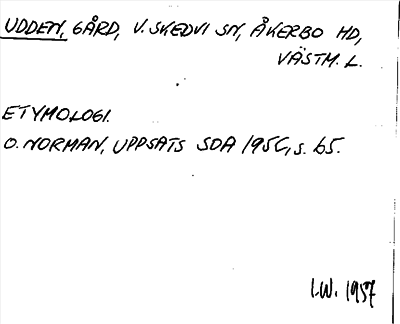 UDDEN, GÅRD, V. SKEDVI SN, ÅKERBO HD,
VÄSTM. L.
ETYMOLOGI.
O. NORMAN, UPPSATS SDA 1956, s. 65.
I.W. 1957